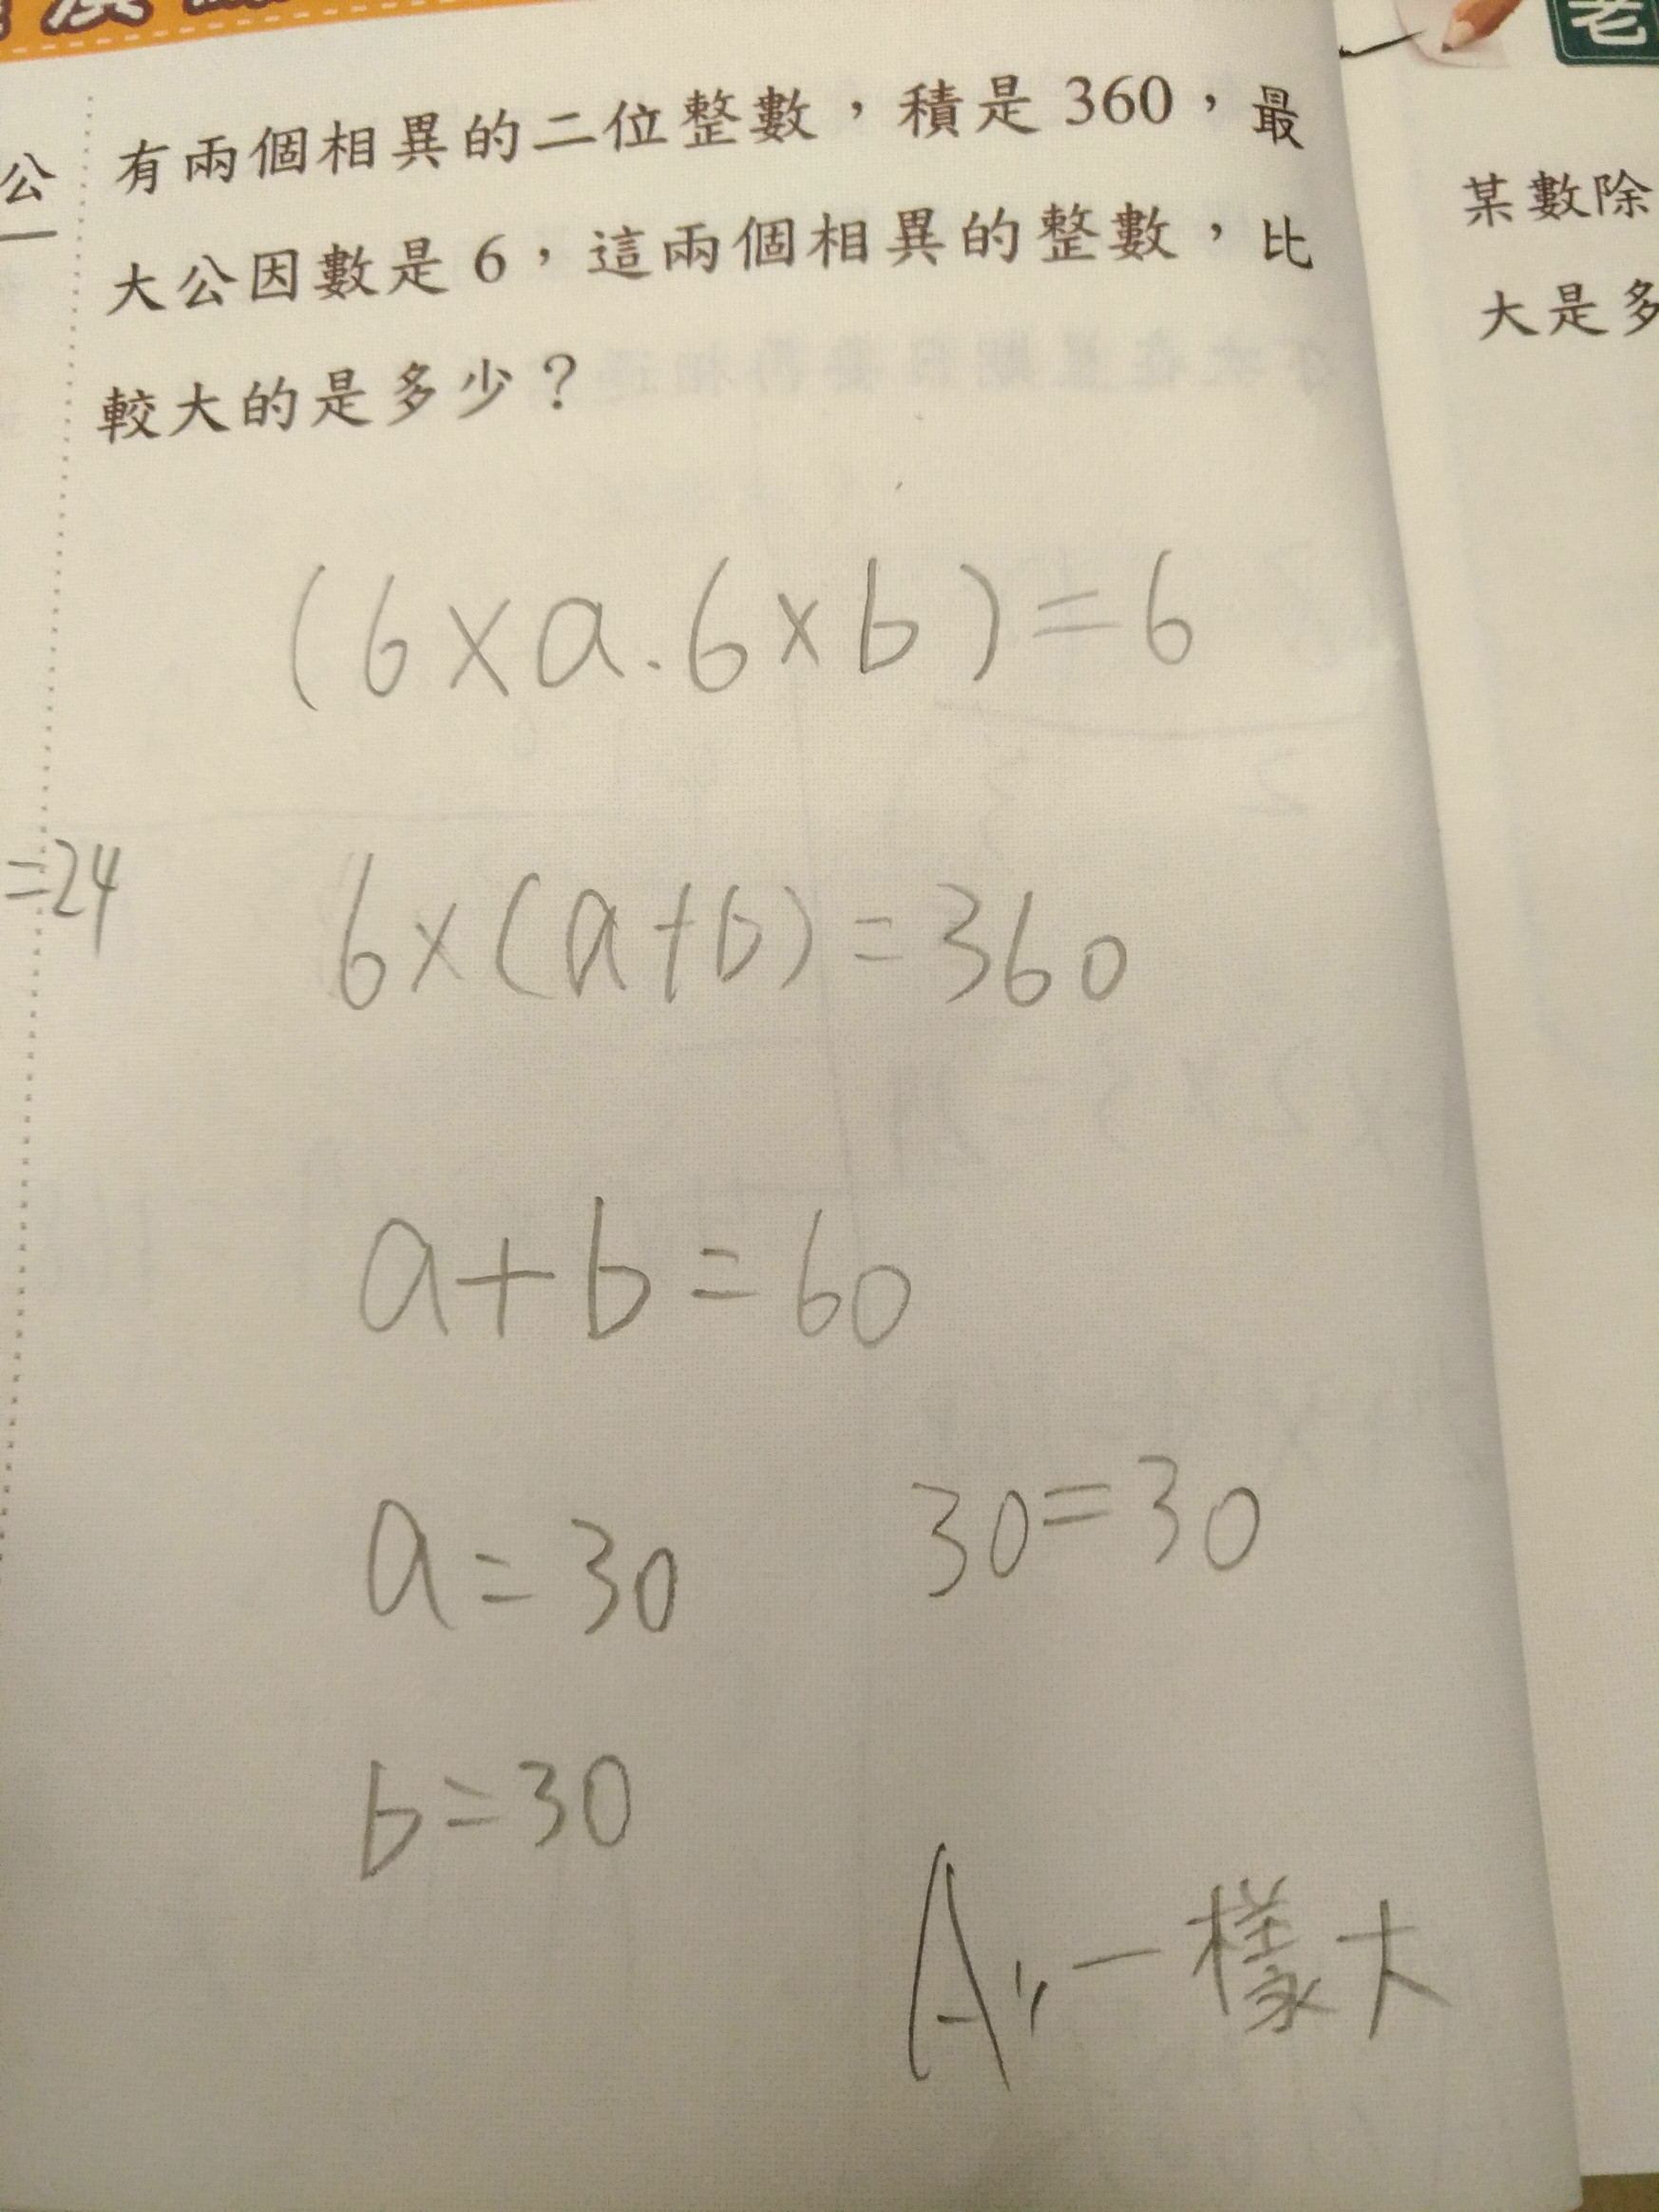 老
公
有兩個相異的二位整數，積是 360，最
大公因數是 6，這兩個相異的整數，比
較大的是多少？
某數除
大是多
(6×a.6×b)=6
=24
6×(a+b)=360
a+b=60
a=30
30=30
b=30
A:一樣大